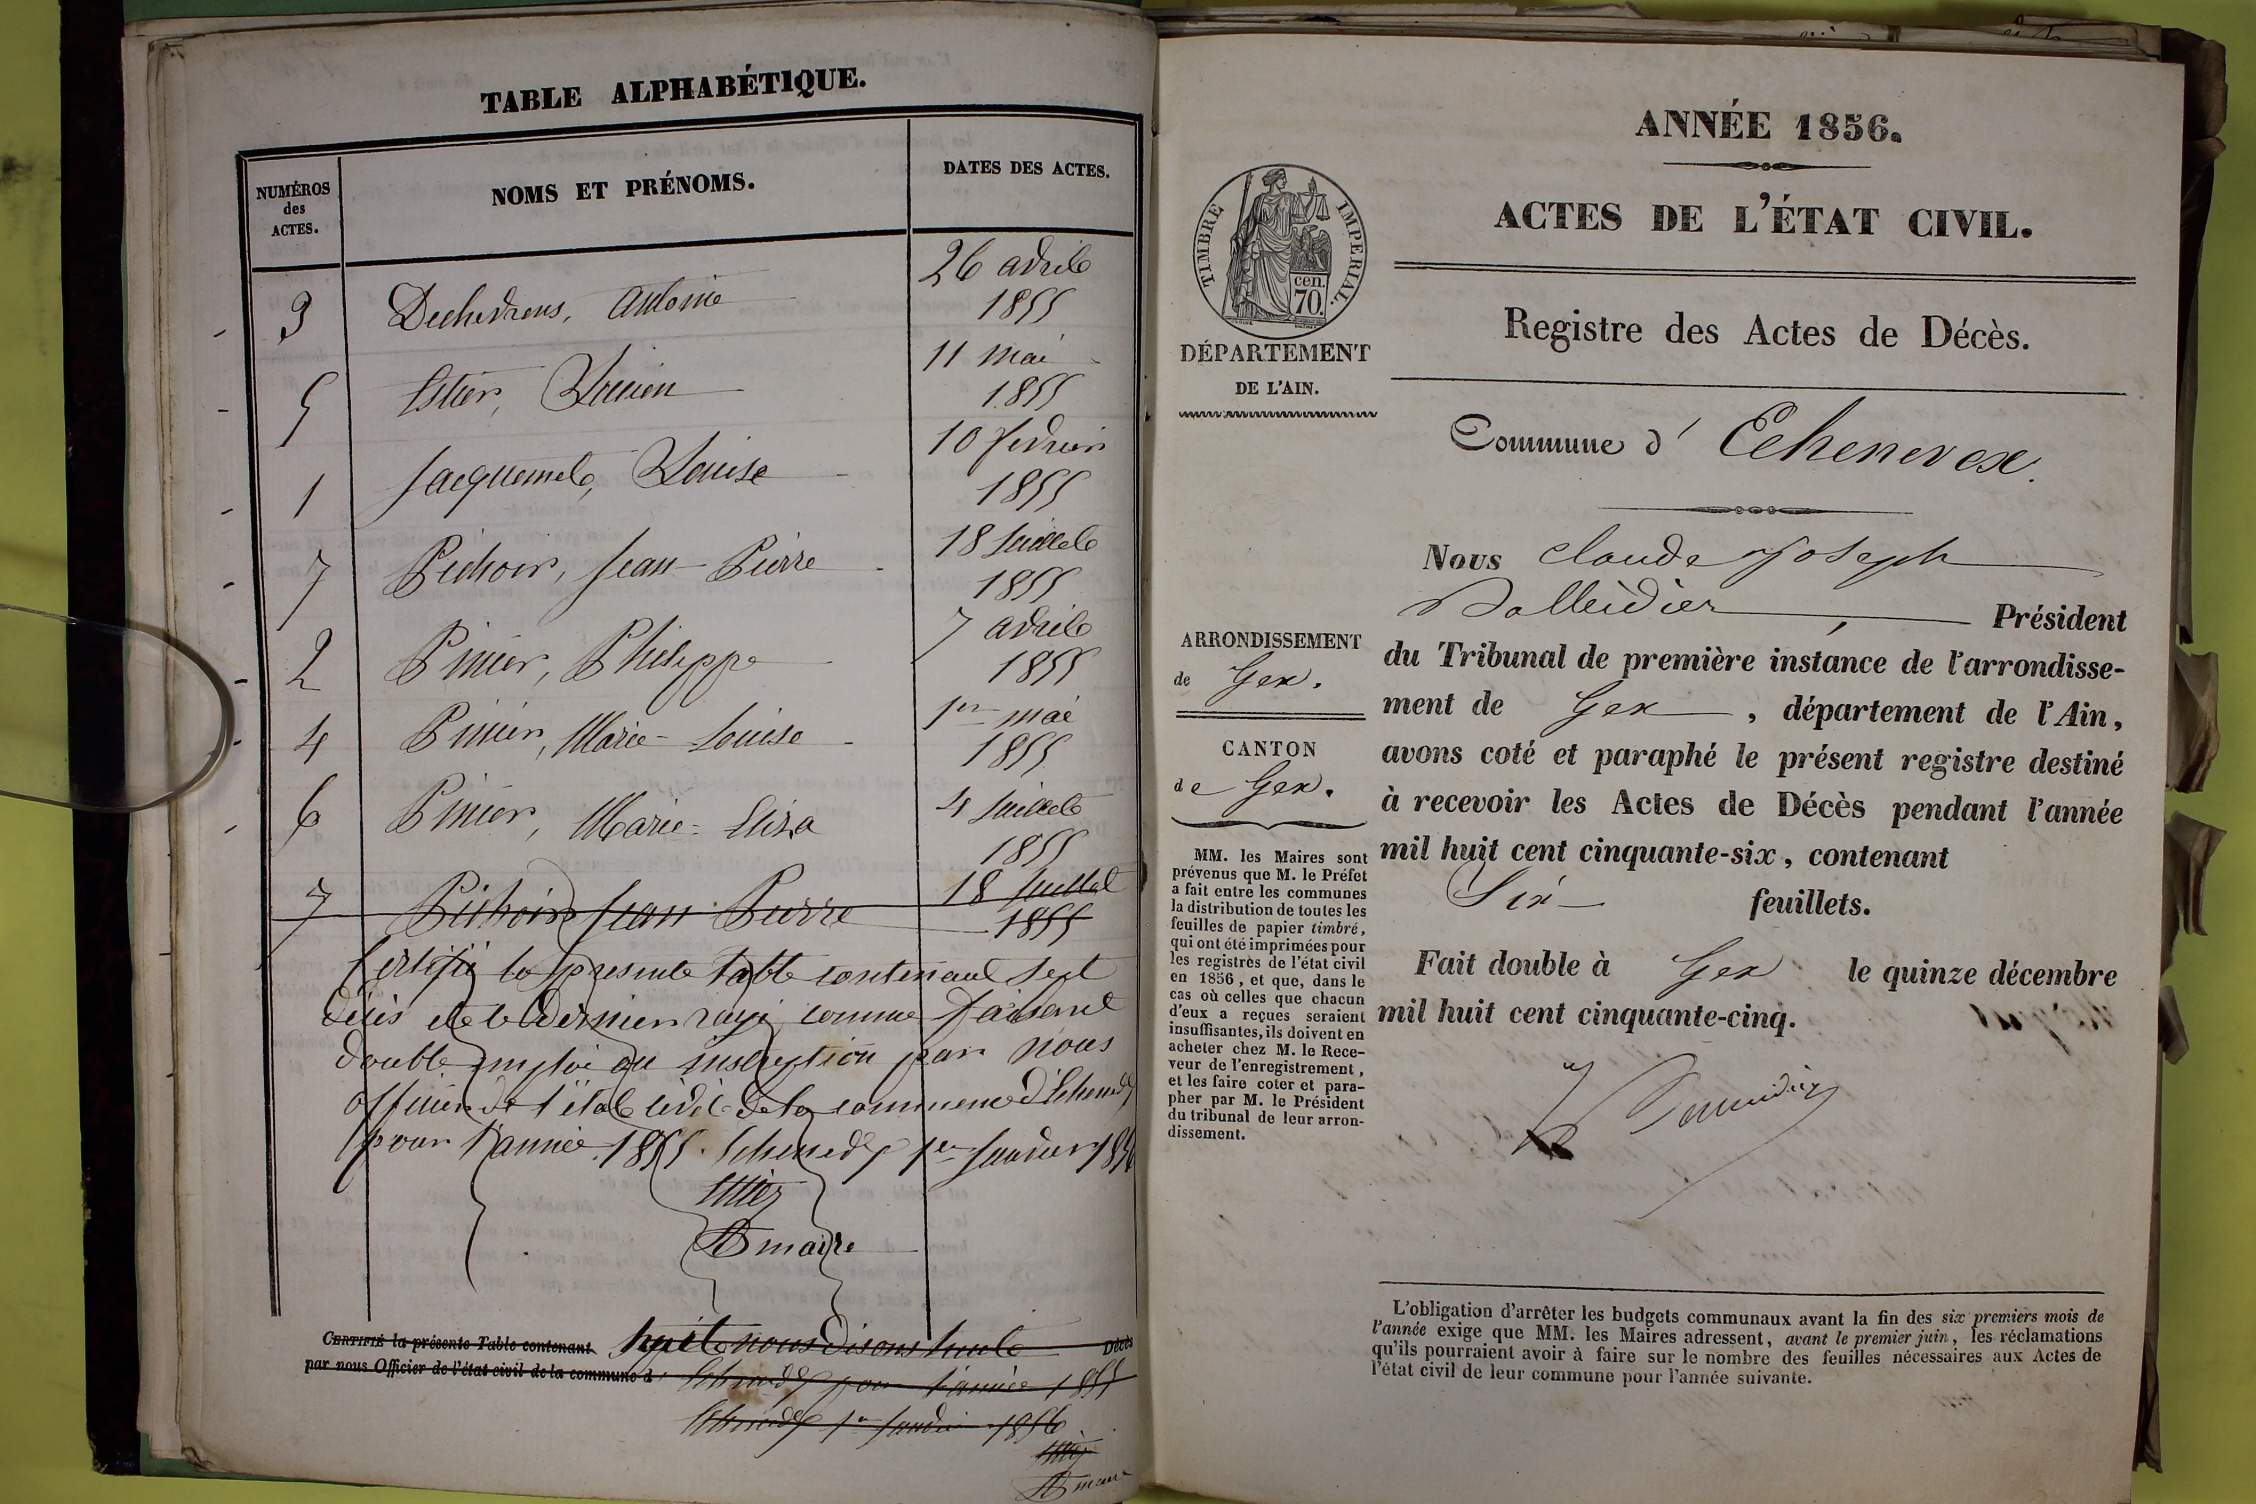 TABLE ALPHABÉTIQUE.
NUMÉROS
des
ACTES.
NOMS ET PRÉNOMS.
DATES DES ACTES.
3 Dechevrens, Antoine 26 avril
1855
5 Estier, Lucien 11 mai
1855
1 Jacquemet, Louise 10 fevrier
1855
7 Pichoir, Jean-Pierre 18 Juillet
1855
2 Pinier, Philippe 7 avril
1855
4 Pinier, Marie-Louise 1er mai
1855
6 Pinier, Marie-Eliza 4 Juillet
1855
7 Pichoir Jean Pierre 18 Juillet
1855
Certifié la présente table contenant sept
décès et le dernier rayé comme faisant
double emploi ou inscription par nous
officier de l'état civil de la commune d'Echenevex
pour l'année 1855. Echenevex 1er Janvier 1856
maire
CERTIFIÉ la présente Table contenant huit nous disons huit Décès
par nous Officier de l'état civil de la commune d' Echenevex pour l'année 1855
Echenevex 1er Janvier 1856
maire
ANNÉE 1856.
ACTES DE L'ÉTAT CIVIL.
TIMBRE IMPÉRIAL.
cen.
70.
DÉPARTEMENT
DE L'AIN.
Registre des Actes de Décès.
Commune d' Echenevex.
Nous Claude Joseph
Président
ARRONDISSEMENT
de Gex.
CANTON
de Gex.
du Tribunal de première instance de l'arrondisse-
ment de Gex, département de l'Ain,
avons coté et paraphé le présent registre destiné
à recevoir les Actes de Décès pendant l'année
mil huit cent cinquante-six, contenant
Six feuillets.
Fait double à Gex le quinze décembre
mil huit cent cinquante-cinq.
MM. les Maires sont
prévenus que M. le Préfet
a fait entre les communes
la distribution de toutes les
feuilles de papier timbré,
qui ont été imprimées pour
les registres de l'état civil
en 1856, et que, dans le
cas où celles que chacun
d'eux a reçues seraient
insuffisantes, ils doivent en
acheter chez M. le Rece-
veur de l'enregistrement,
et les faire coter et para-
pher par M. le Président
du tribunal de leur arron-
dissement.
L'obligation d'arrêter les budgets communaux avant la fin des six premiers mois de
l'année exige que MM. les Maires adressent, avant le premier juin, les réclamations
qu'ils pourraient avoir à faire sur le nombre des feuilles nécessaires aux Actes de
l'état civil de leur commune pour l'année suivante.